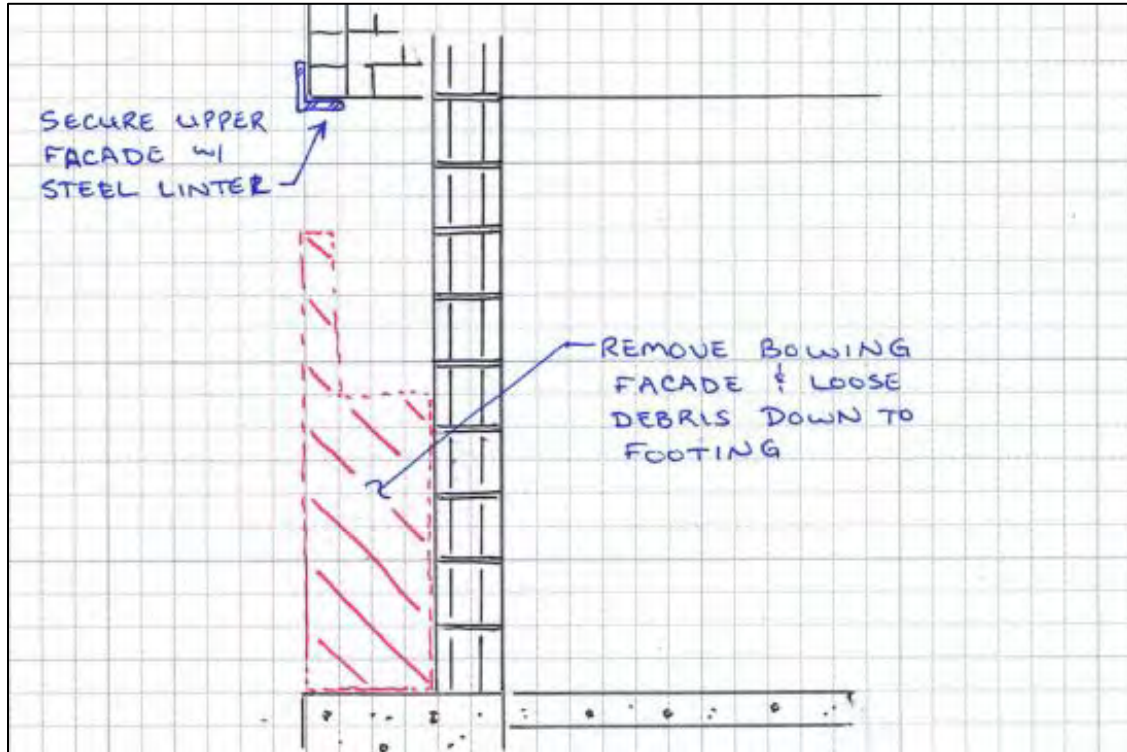 SECURE UPPER
FACADE W/
STEEL LINTER
REMOVE BOWING
FACADE & LOOSE
DEBRIS DOWN TO
FOOTING